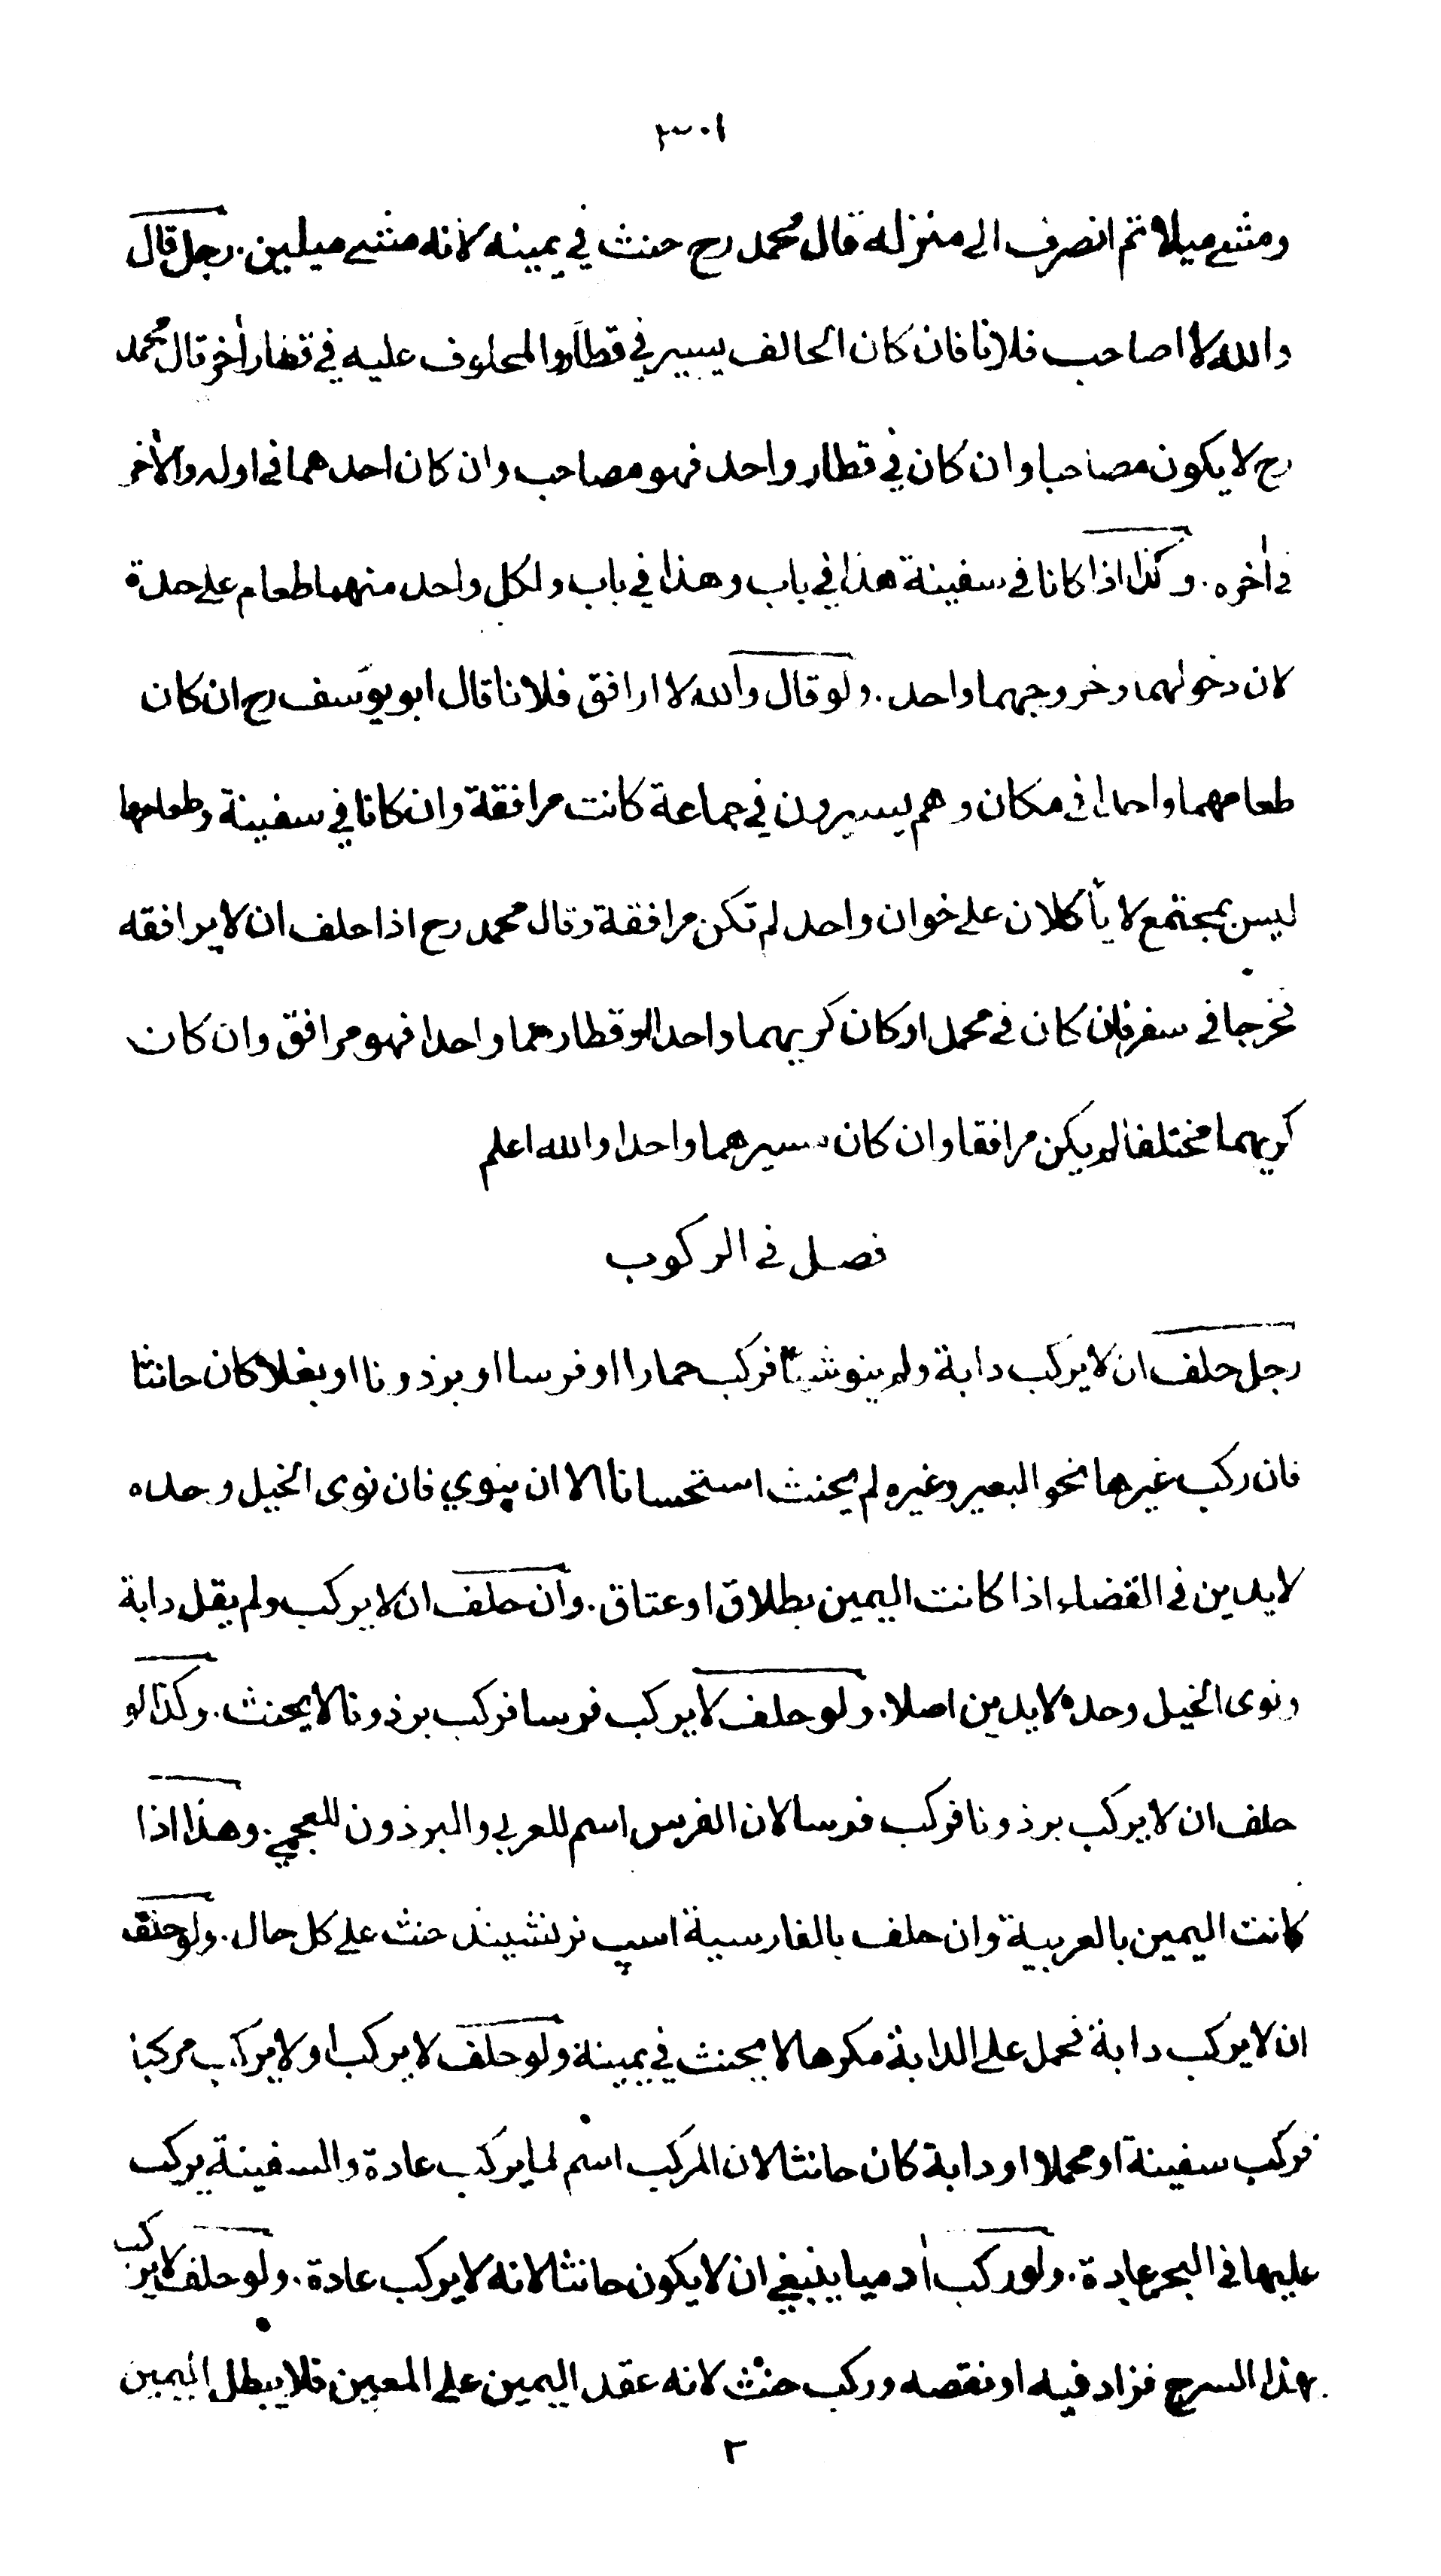 ١٠٣٣
ومشى ميلا ثم انصرف الى منزله قال محمد رح حنث في يمينه لانه مشى ميلين. رجل قال
والله لا اصاحب فلانا فان كان الحالف يسير في قطار والمحلوف عليه في قطار اٰخر قال محمد
رح لا يكون مصاحبا وان كان في قطار واحد فهو مصاحب وان كان احدهما في اوله والاٰخر
في اٰخره. وكذا اذا كانا في سفينة هذا في باب وهذا في باب ولكل واحد منهما طعام على حدة
لان دخولهما وخروجهما واحد. ولو قال والله لا ارافق فلانا قال ابو يوسف رح ان كان
طعامهما واحدا في مكان وهم يسيرون في جماعة كانت مرافقة وان كانا في سفينة وطعامهما
ليس بمجتمع لا يأكلان على خوان واحد لم تكن مرافقة وقال محمد رح اذا حلف ان لا يرافقه
فخرجا في سفر فان كان في محمل او كان كريهما واحدا او قطارهما واحدا فهو مرافق وان كان
كريهما مختلفا لم يكن مرافقا وان كان سيرهما واحدا والله اعلم
فصل في الركوب
رجل حلف ان لا يركب دابة ولم ينو شيئا فركب حمارا او فرسا او برذونا او بغلا كان حانثا
فان ركب غيرها نحو البعير وغيره لم يحنث استحسانا الا ان ينوي فان نوى الخيل وحده
لا يدين في القضاء اذا كانت اليمين بطلاق او عتاق. وان حلف ان لا يركب ولم يقل دابة
ونوى الخيل وحده لا يدين اصلا. ولو حلف لا يركب فرسا فركب برذونا لا يحنث. وكذا لو
حلف ان لا يركب برذونا فركب فرسا لان الفرس اسم للعربي والبرذون للعجمي. وهذا اذا
كانت اليمين بالعربية وان حلف بالفارسية اسپ نرنشيند حنث على كل حال. ولو حلف
ان لا يركب دابة فحمل على الدابة مكرها لا يحنث في يمينه ولو حلف لا يركب او لا يركب مركبا
فركب سفينة او محملا او دابة كان حانثا لان المركب اسم لما يركب عادة والسفينة يركب
عليها في البحر عادة. ولو ركب اٰدميا ينبغي ان لا يكون حانثا لانه لا يركب عادة. ولو حلف لا يركب
بهذا السرج فزاد فيه او نقصه وركب حنث لانه عقد اليمين على المعين فلا يبطل اليمين
٢